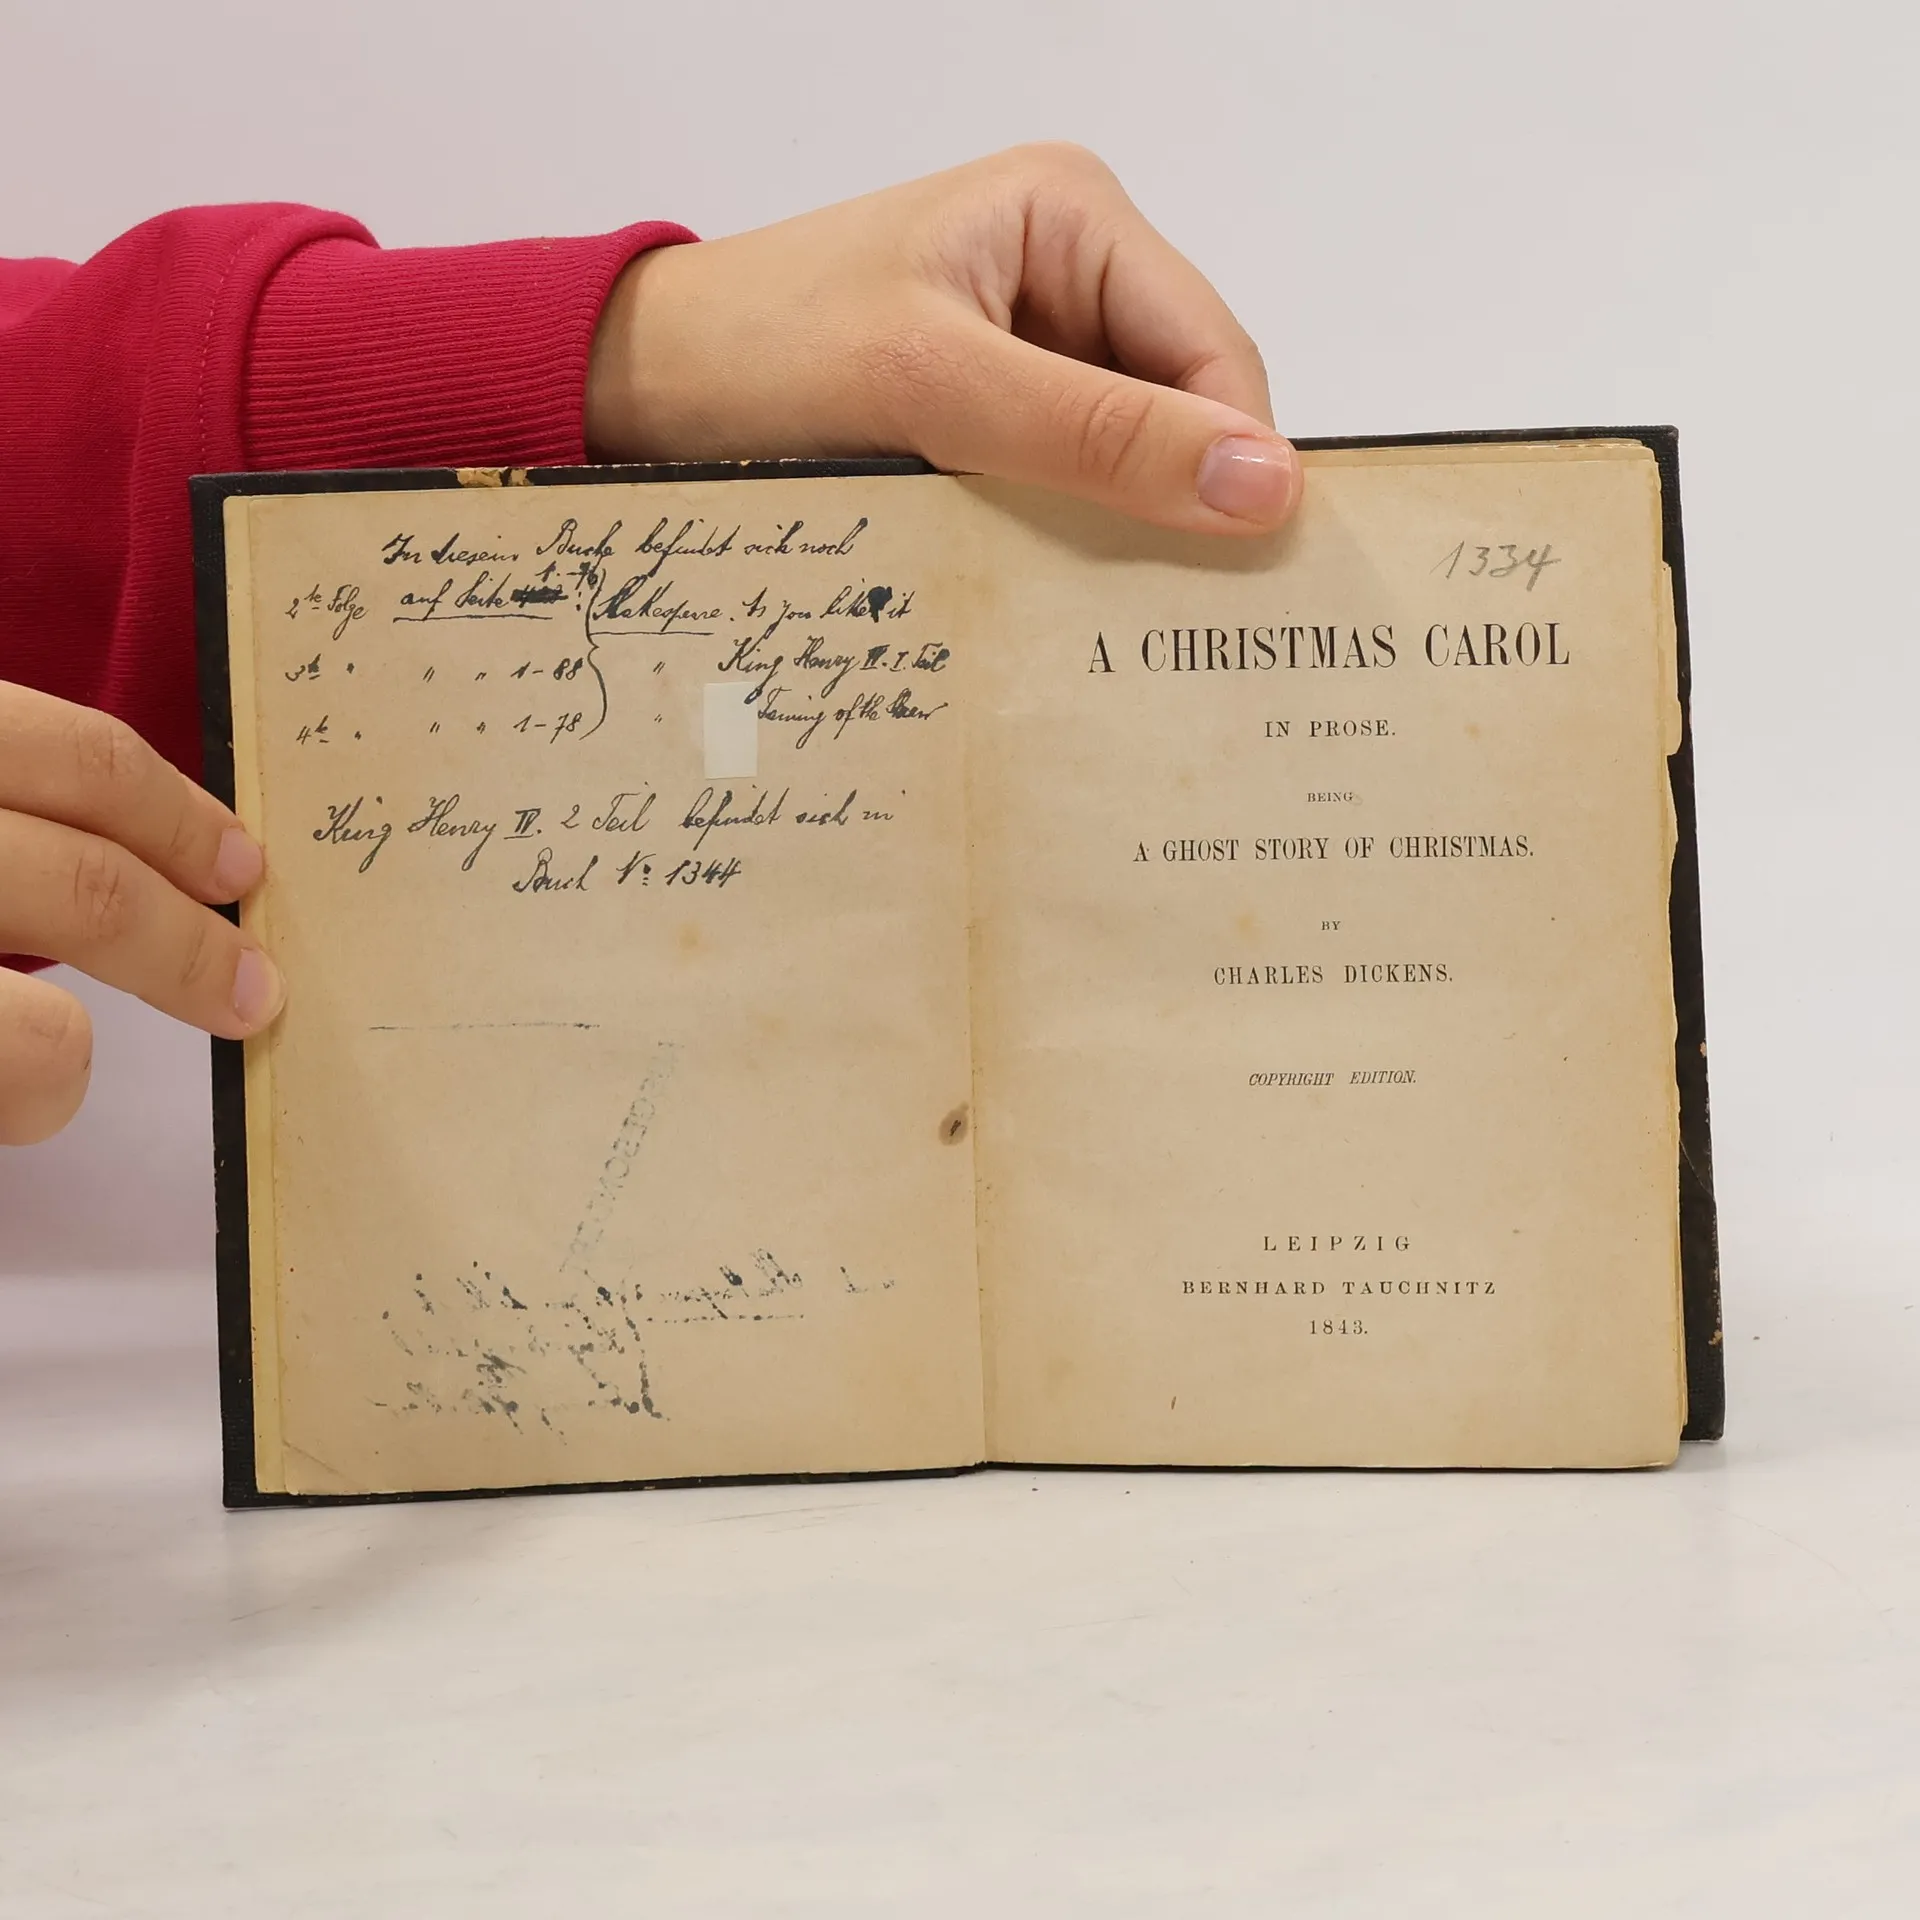 In diesem Buche befindet sich noch
1.-76
2te Folge auf Seite : Shakespeare. As you like it
3te " " " 1-88 " King Henry IV. I. Teil
4te " " " 1-78 " Taming of the Shrew
King Henry IV. 2 Teil befindet sich in
Buch No 1344
1334
A CHRISTMAS CAROL
IN PROSE.
BEING
A GHOST STORY OF CHRISTMAS.
BY
CHARLES DICKENS.
COPYRIGHT EDITION.
LEIPZIG
BERNHARD TAUCHNITZ
1843.